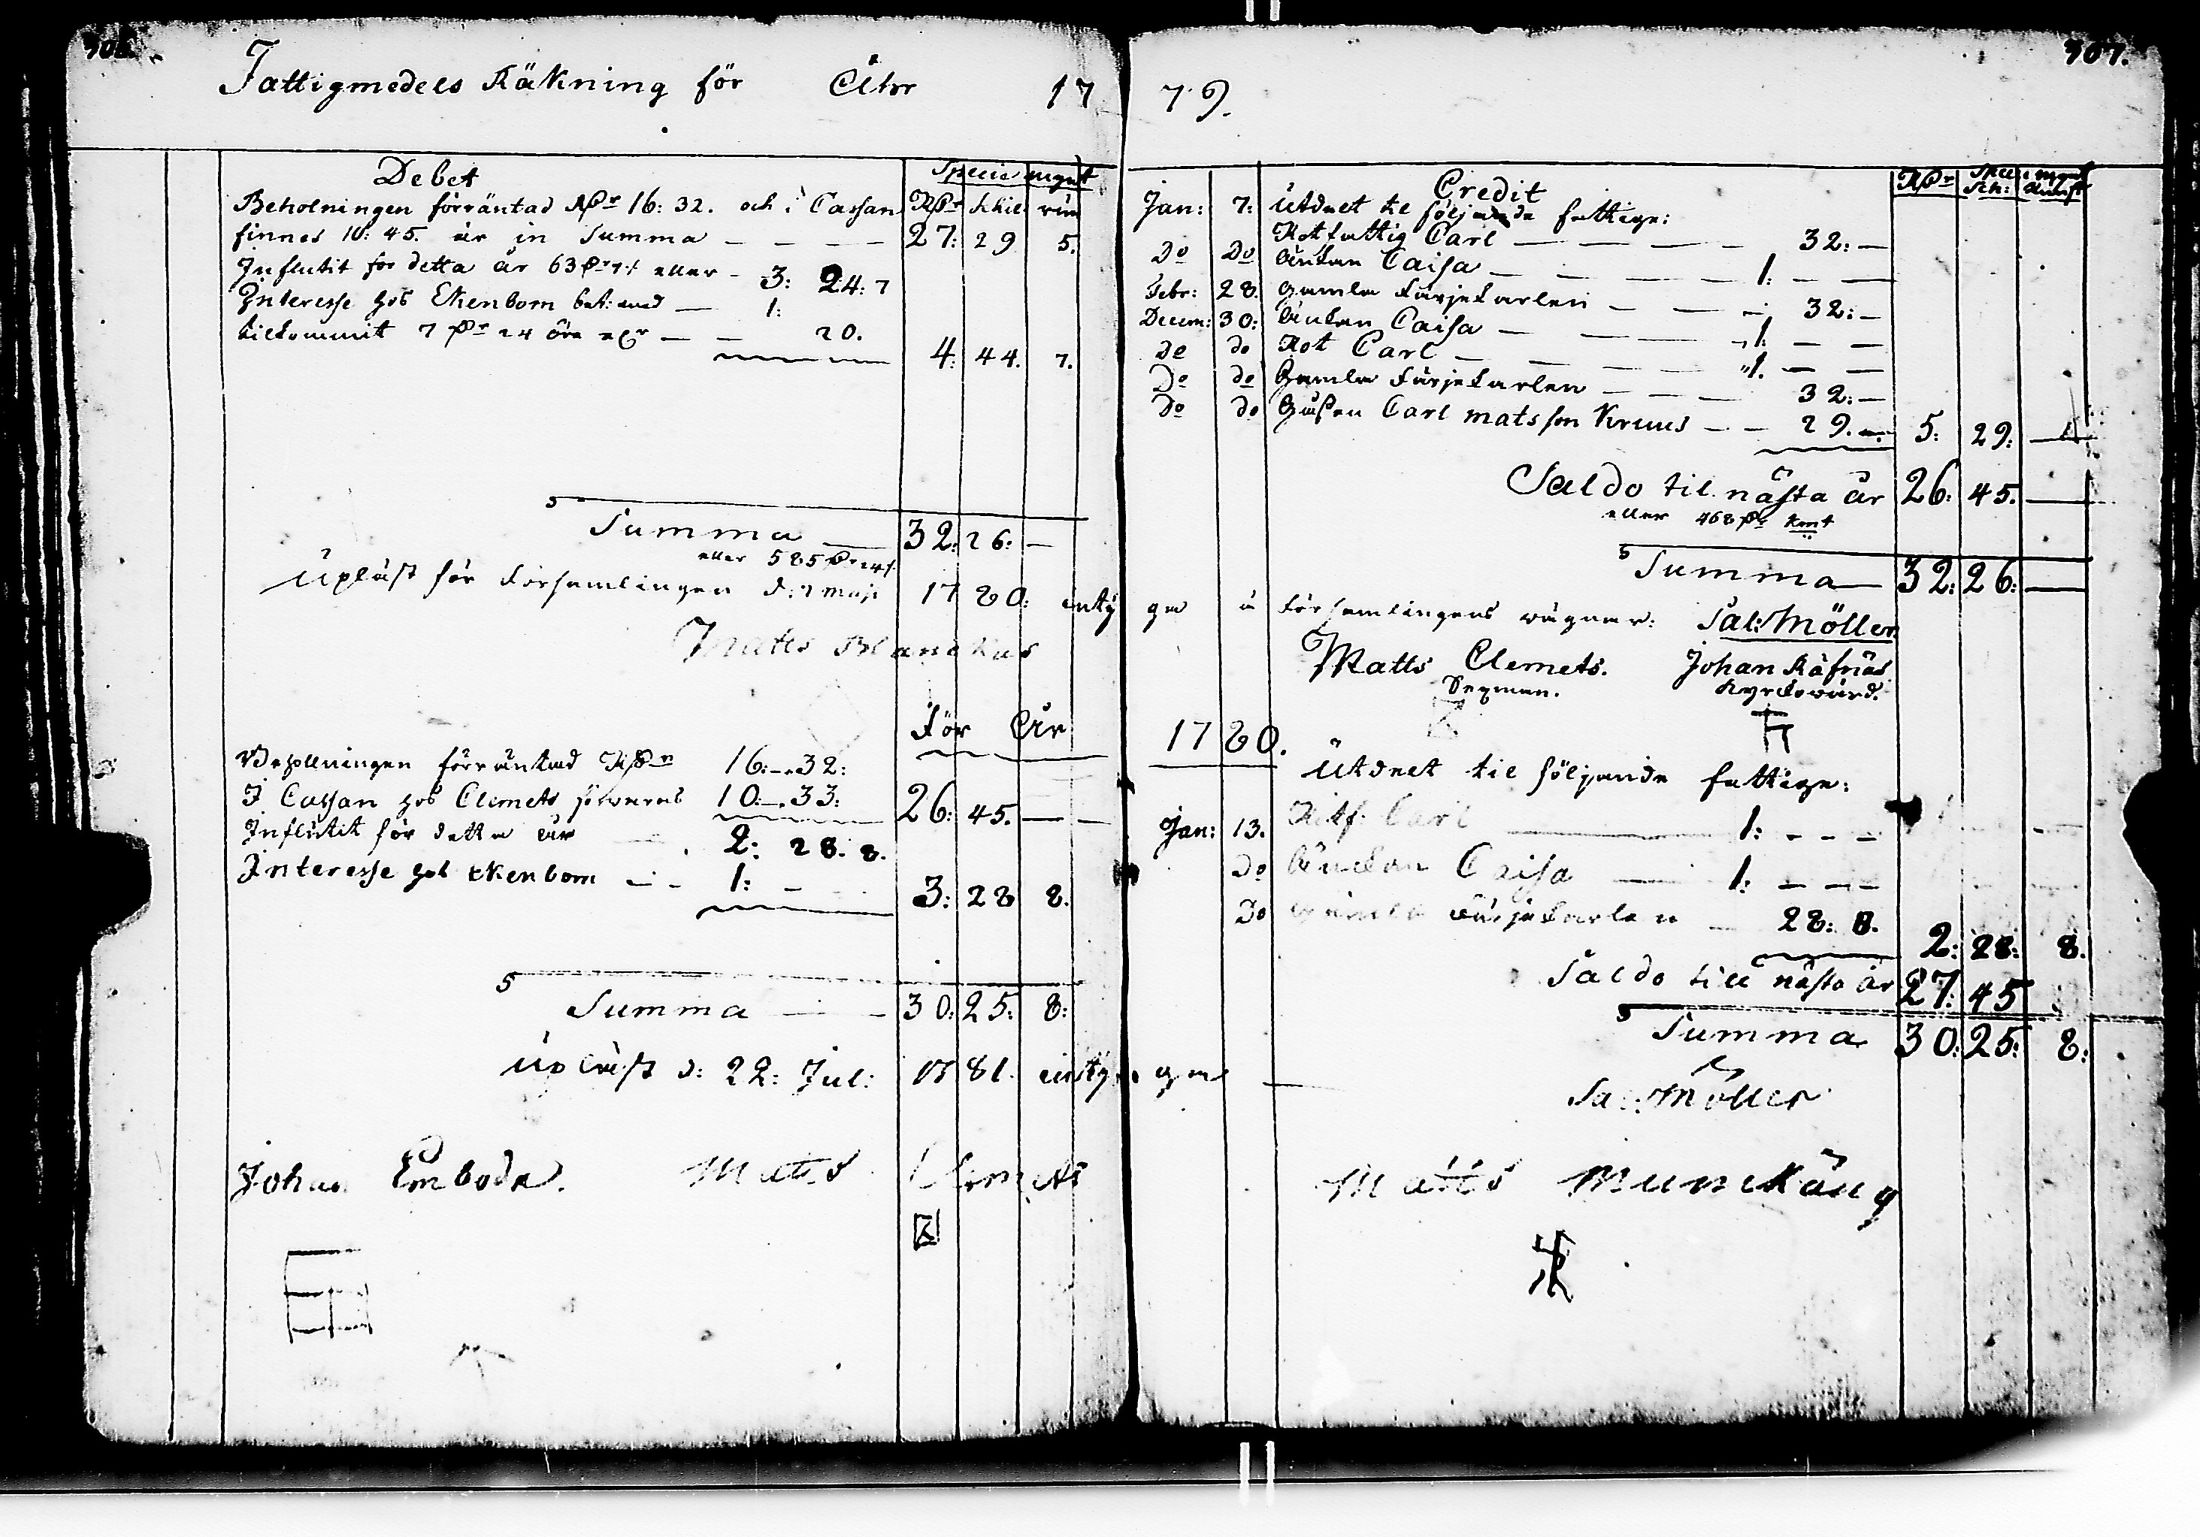 Fattigmedels Räkning för Åhr 17
Debet
Specie mynt
Beholningen förräntad RDr 16: 32. och i Cassan RDr Schil: run
finnes 10: 45. är in Summa — — — — 27: 29 5.
Influtit för detta år 63 Dr eller — 3: 24: 7
Interesse hos Ekenbom bet: med — 1:
tilkommit 7 Dr 24 öre — — 20.
4: 44. 7.
Summa — 32: 26: —
eller 585 Dr
Upläst för Församlingen d: 7 maji 1780: inty
Matts Blanckas
För År
Behollningen förräntad RDr 16: — 32:
I Cassan hos Clemets 10: — 33: 26: 45. — —
Influtit för detta år 2: 28. 8.
Interesse hos Ekenbom — 1: — 3: 28 8.
Summa — — 30: 25: 8:
Upläst d: 22: Jul: 1781. inty
Johan Emboda. Matts Clemets
707.
79.
Credit
RDr Sch:
Jan: 7: Utdelt til följande fattige:
Rotfattig Carl — — — 32: —
Do Do Änkan Caisa — — — 1: — —
Febr: 28. Gamla Färjekarlen — — 32: —
Decem: 30: Änkan Caisa — — — 1: — —
Do do Rot Carl — — — 1. — —
Do do Gamla Färjekarlen — — — 32: —
Do do Carl Matsson Kruus — — 29. — 5: 29: —
Saldo til nästa år 26: 45. —
eller 468 Dr Kmt
Summa — 32: 26: —
ga å Församlingens wägnar: Sal: Möller
Matts Clemets. Johan Räfnäs
Sexman. Kyrckowärd.
1780.
Utdelt til följande fattige:
Jan: 13. Rotf: Carl — 1: — — —
Do Änckan Caisa — 1: — — —
Do Gamla Färjekarlen — 28: 8. 2: 28: 8.
Saldo till nästa år 27: 45
Summa 30: 25: 8:
ga —
Sal: Möller
Matts Munckäng